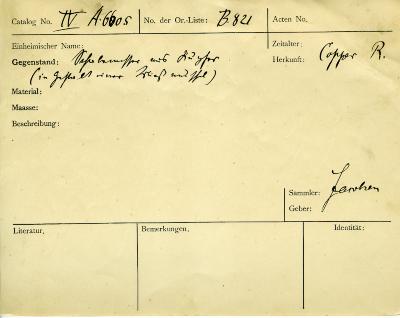 Catalog No. IV A 6605 No. der Or.-Liste: B 821 Acten No.
Einheimischer Name: Zeitalter:
Gegenstand: Schabemesser aus Kupfer Herkunft: Copper R.
(in Gestalt einer
Material:
Maasse:
Beschreibung:
Sammler: Jacobsen
Geber:
Literatur. Bemerkungen. Identität: